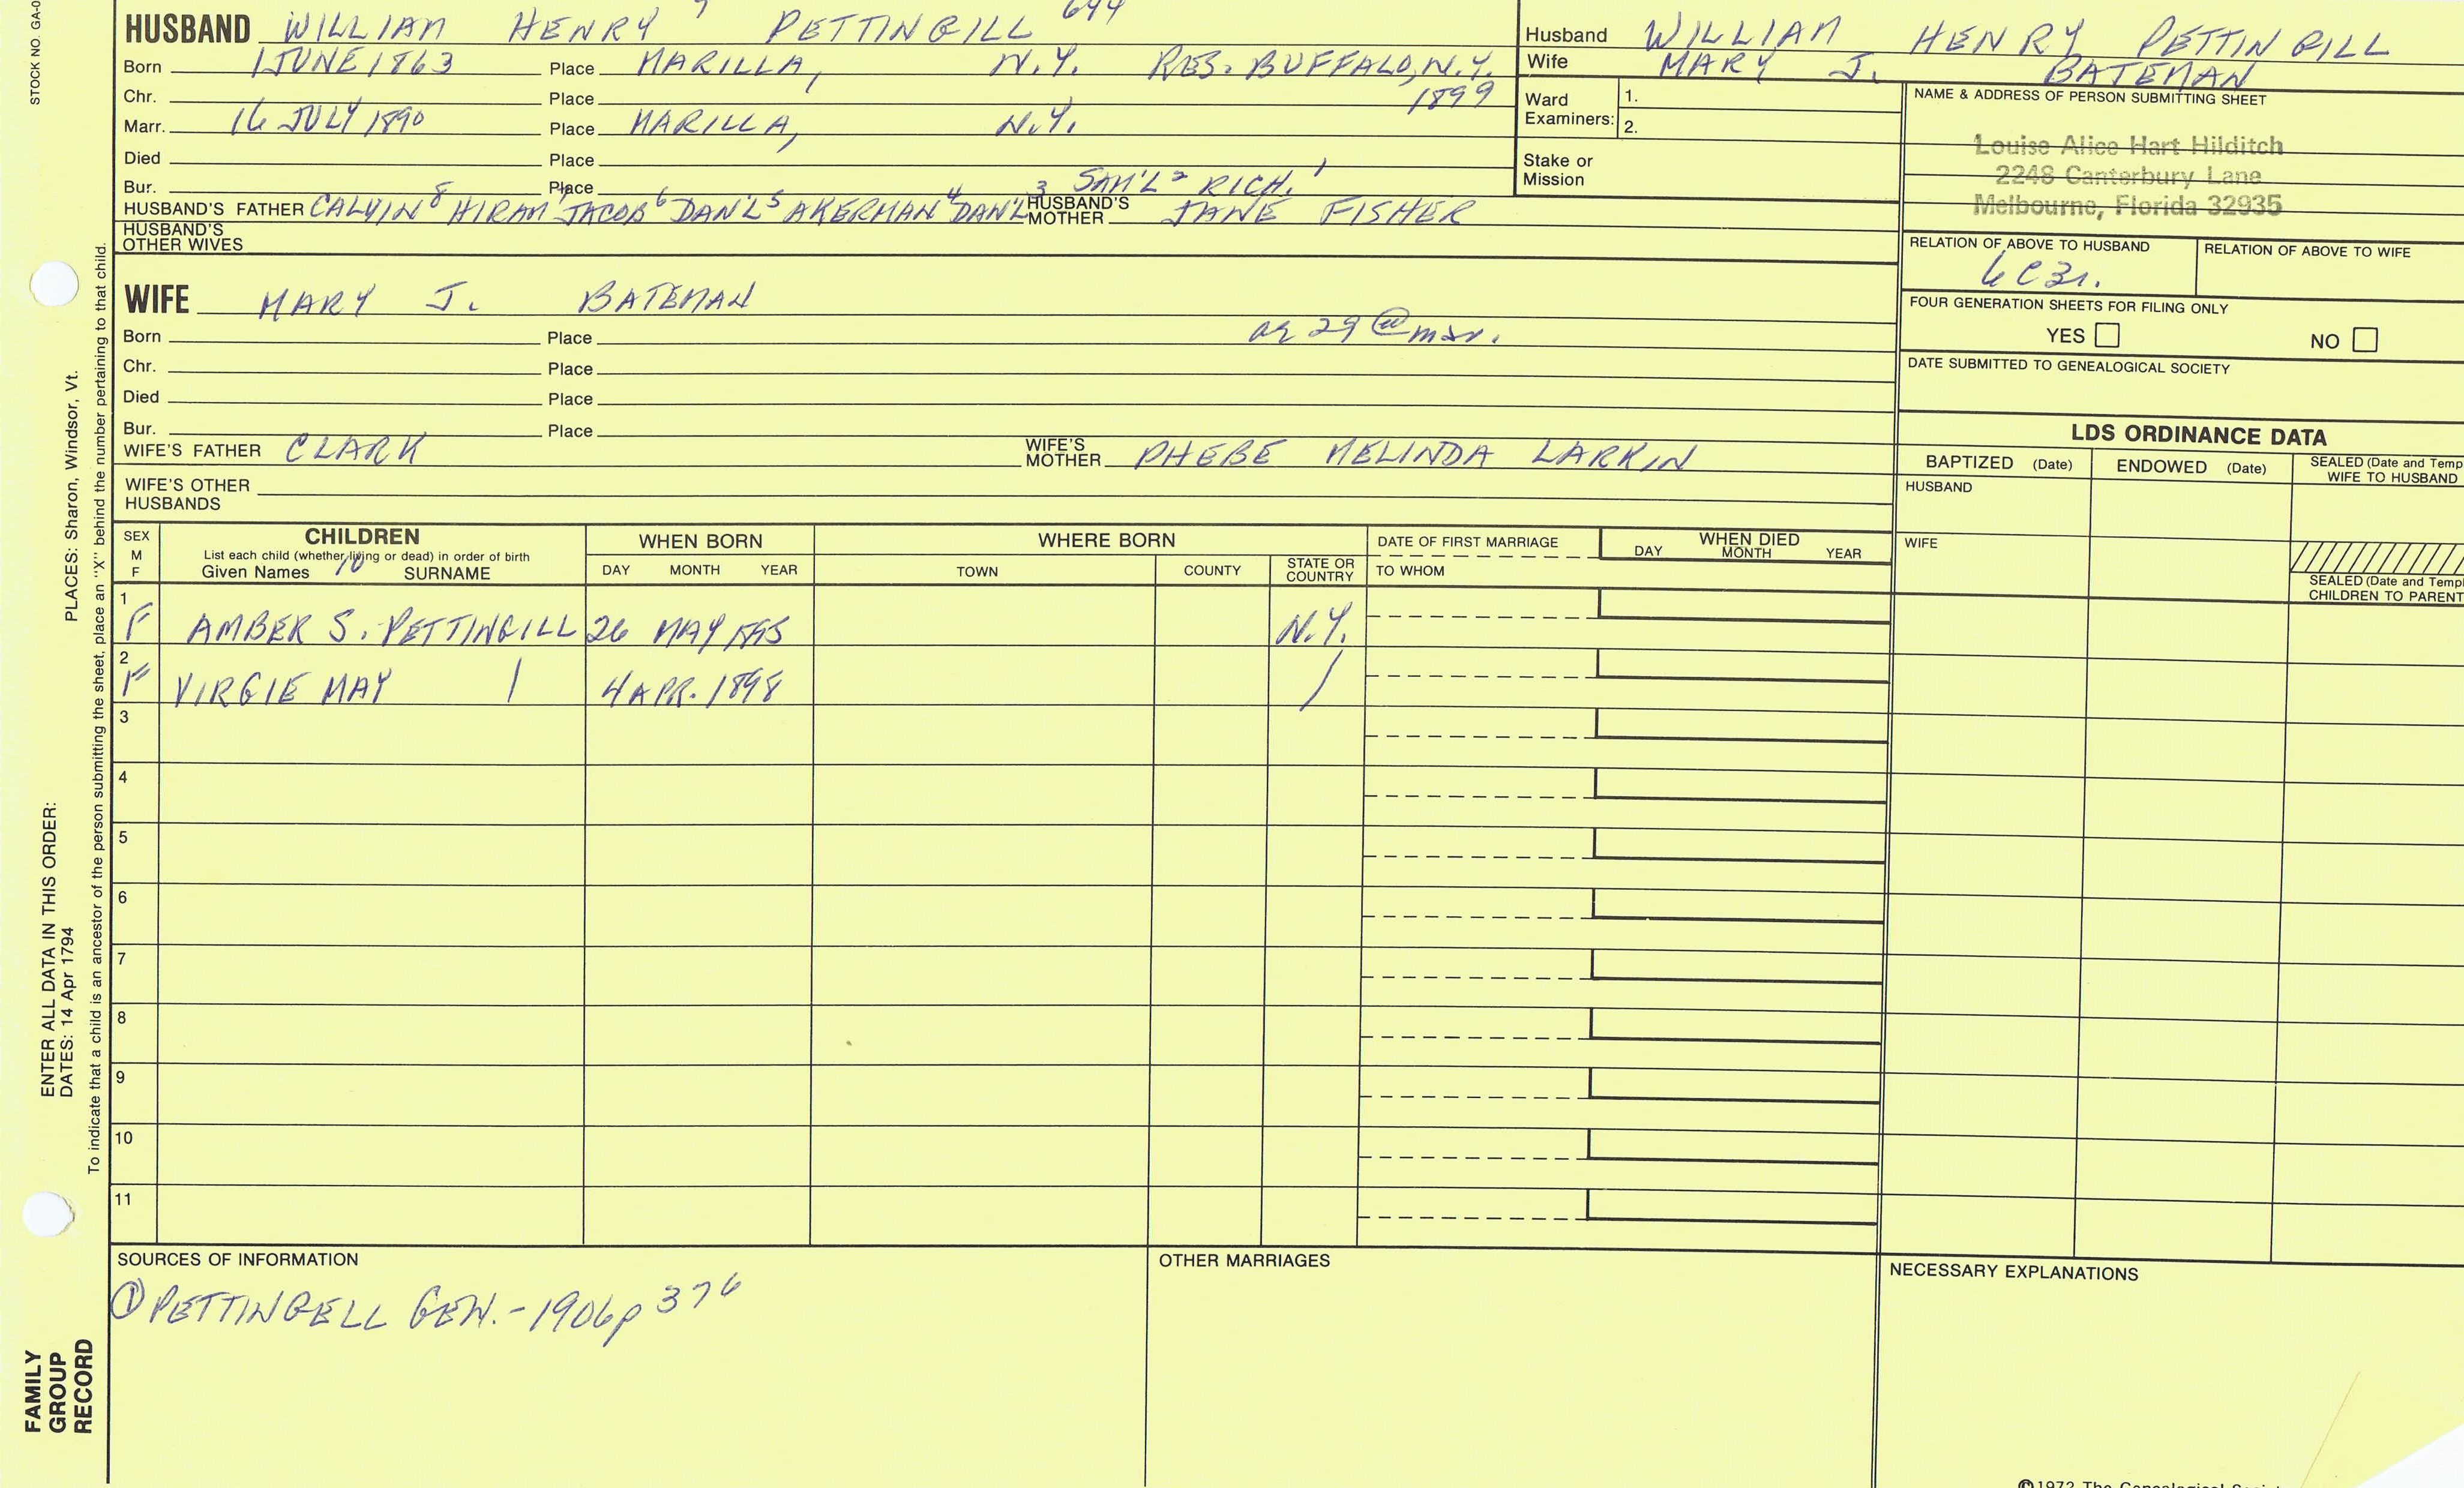 STOCK NO. GA-0
HUSBAND WILLIAM HENRY 9 PETTINGILL 644
Born 1 JUNE 1863 Place MARILLA, N.Y. RES. BUFFALO, N.Y.
Chr. Place 1899
Marr. 16 JULY 1890 Place MARILLA, N.Y.
Died Place
Bur. Place 3 SAM'L 2 RICH. 1
HUSBAND'S FATHER CALVIN 8 HIRAM 7 JACOB 6 DAN'L 5 AKERMAN 4 DAN'L HUSBAND'S MOTHER JANE FISHER
HUSBAND'S OTHER WIVES
WIFE MARY J. BATEMAN
Born Place 29 @ mar.
Chr. Place
Died Place
Bur. Place
WIFE'S FATHER CLARK WIFE'S MOTHER PHEBE MELINDA LARKIN
WIFE'S OTHER HUSBANDS
Husband WILLIAM HENRY PETTINGILL
Wife MARY J. BATEMAN
Ward Examiners: 1.
2.
Stake or Mission
NAME & ADDRESS OF PERSON SUBMITTING SHEET
Louise Alice Hart Hilditch
2248 Canterbury Lane
Melbourne, Florida 32935
RELATION OF ABOVE TO HUSBAND RELATION OF ABOVE TO WIFE
6C3r.
FOUR GENERATION SHEETS FOR FILING ONLY
YES NO
DATE SUBMITTED TO GENEALOGICAL SOCIETY
LDS ORDINANCE DATA
BAPTIZED (Date) ENDOWED (Date) SEALED (Date and Temp
WIFE TO HUSBAND
HUSBAND
WIFE
SEALED (Date and Templ
CHILDREN TO PARENT
SEX M F
CHILDREN
List each child (whether living or dead) in order of birth
Given Names 10 SURNAME
WHEN BORN
DAY MONTH YEAR
WHERE BORN
TOWN COUNTY STATE OR COUNTRY
DATE OF FIRST MARRIAGE
TO WHOM
WHEN DIED
DAY MONTH YEAR
1 F AMBER S. PETTINGILL 26 MAY 1895 N.Y.
2 F VIRGIE MAY / 4 APR. 1898 /
3
4
5
6
7
8
9
10
11
SOURCES OF INFORMATION
① PETTINGELL GEN. - 1906 p 376
OTHER MARRIAGES
NECESSARY EXPLANATIONS
PLACES: Sharon, Windsor, Vt.
ENTER ALL DATA IN THIS ORDER:
DATES: 14 Apr 1794
To indicate that a child is an ancestor of the person submitting the sheet, place an "X" behind the number pertaining to that child.
FAMILY
GROUP
RECORD
©1972 The Genealogical